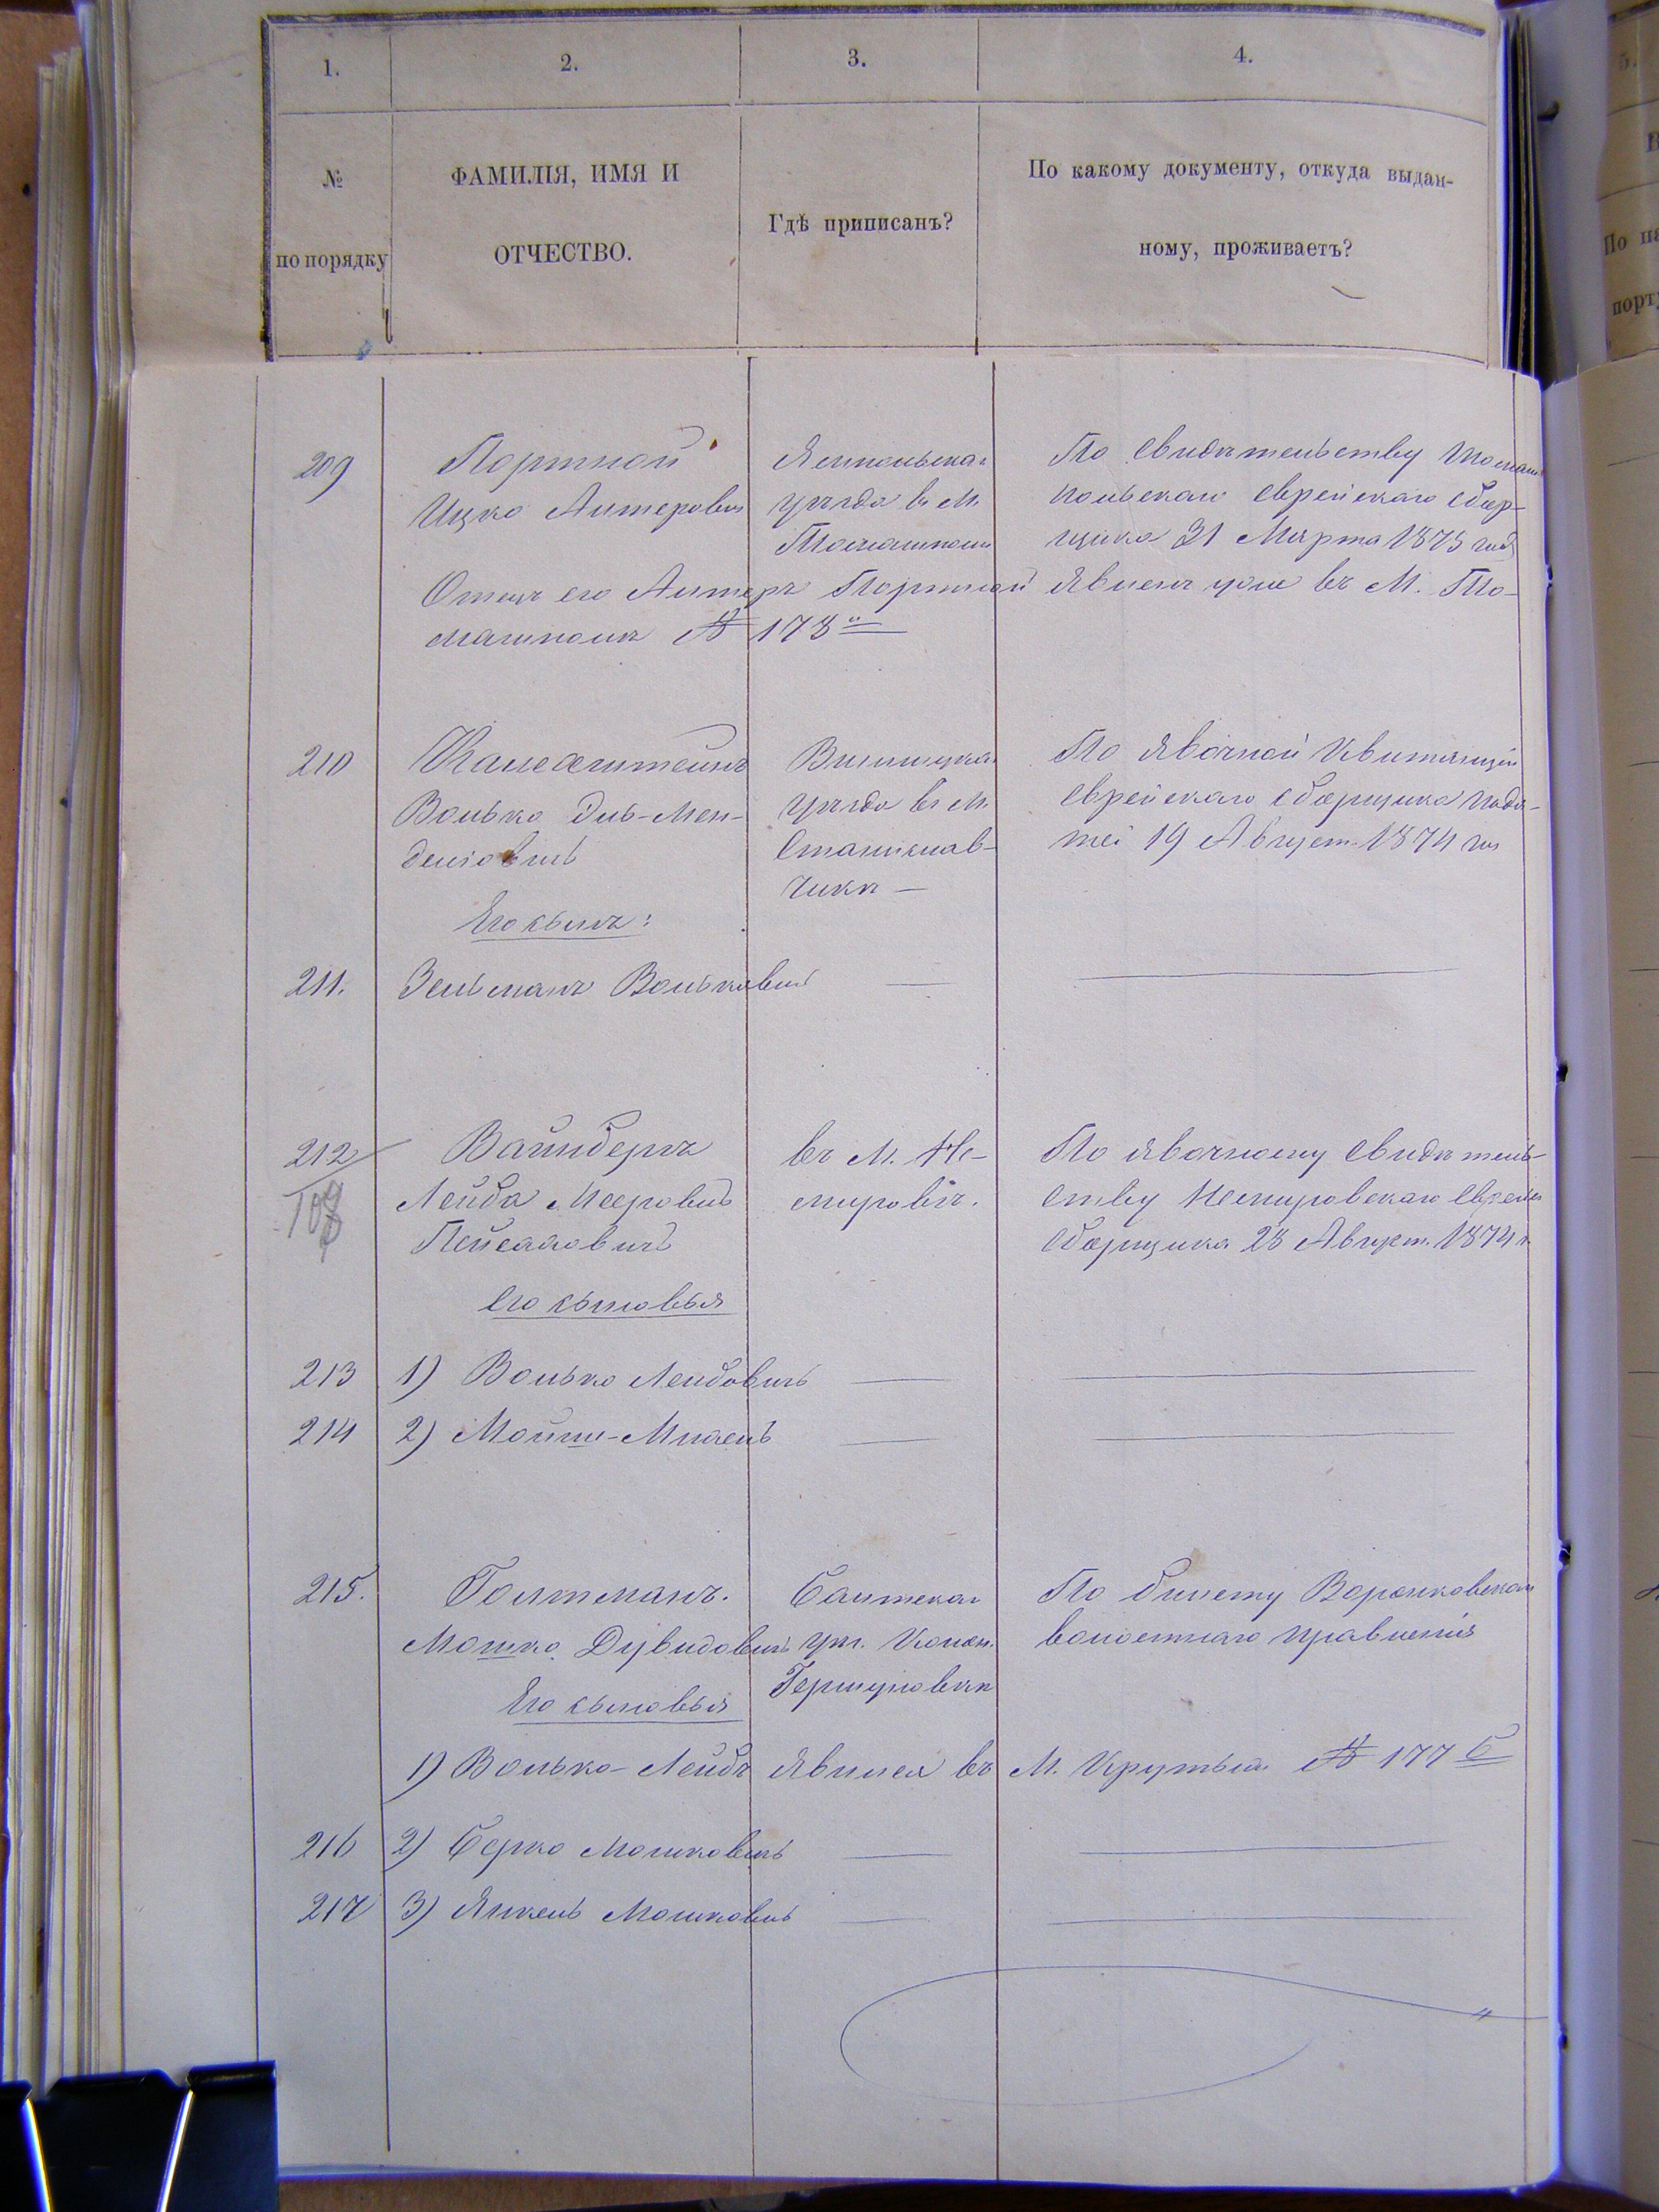 1.
2.
3.
4.
№
по порядку
ФАМИЛІЯ, ИМЯ И
ОТЧЕСТВО.
Гдѣ приписанъ?
По какому документу, откуда выдан-
ному, проживаетъ?
5.
209
Портной
Ицко Алтеровичъ
Ямпольскаго
уѣзда въ М.
Томашполи
По свидѣтельству Томаш
польскаго еврейскаго сбор-
щика 31 Марта 1875 года
Отецъ его Алтеръ Портной явленъ уже въ М. То-
машполѣ № 178
210
Волько Дув-Мен-
деліовичъ
Его сынъ:
Винницкаго
уѣзда въ М.
Станіслав-
чикѣ —
По явочной Квитанціи
еврейскаго сборщика пода-
тей 19 Август. 1874 года
211.
Зельманъ Вольковичъ
212
108
Вайнбергъ
Лейба Мееровичъ
Пейсаховичъ
его сыновья
въ М. Не-
мировѣ.
По явочному свидѣтель-
ству Немировскаго еврейск
сборщика 28 Август. 1874 г.
213
1) Волько Лейбовичъ
214
2) Мойше-Михель
215.
Голтманъ.
Мошко Дувидовичъ
Его сыновья
Балтскаго
уѣз. Колон.
Гершуновкѣ
По билету Воронковскаго
волостнаго правленія
1) Волько-Лейбъ явился въ М. Крутыхъ № 177 Б
216
2) Берко Мошковичъ
217
3) Янкель Мошковичъ